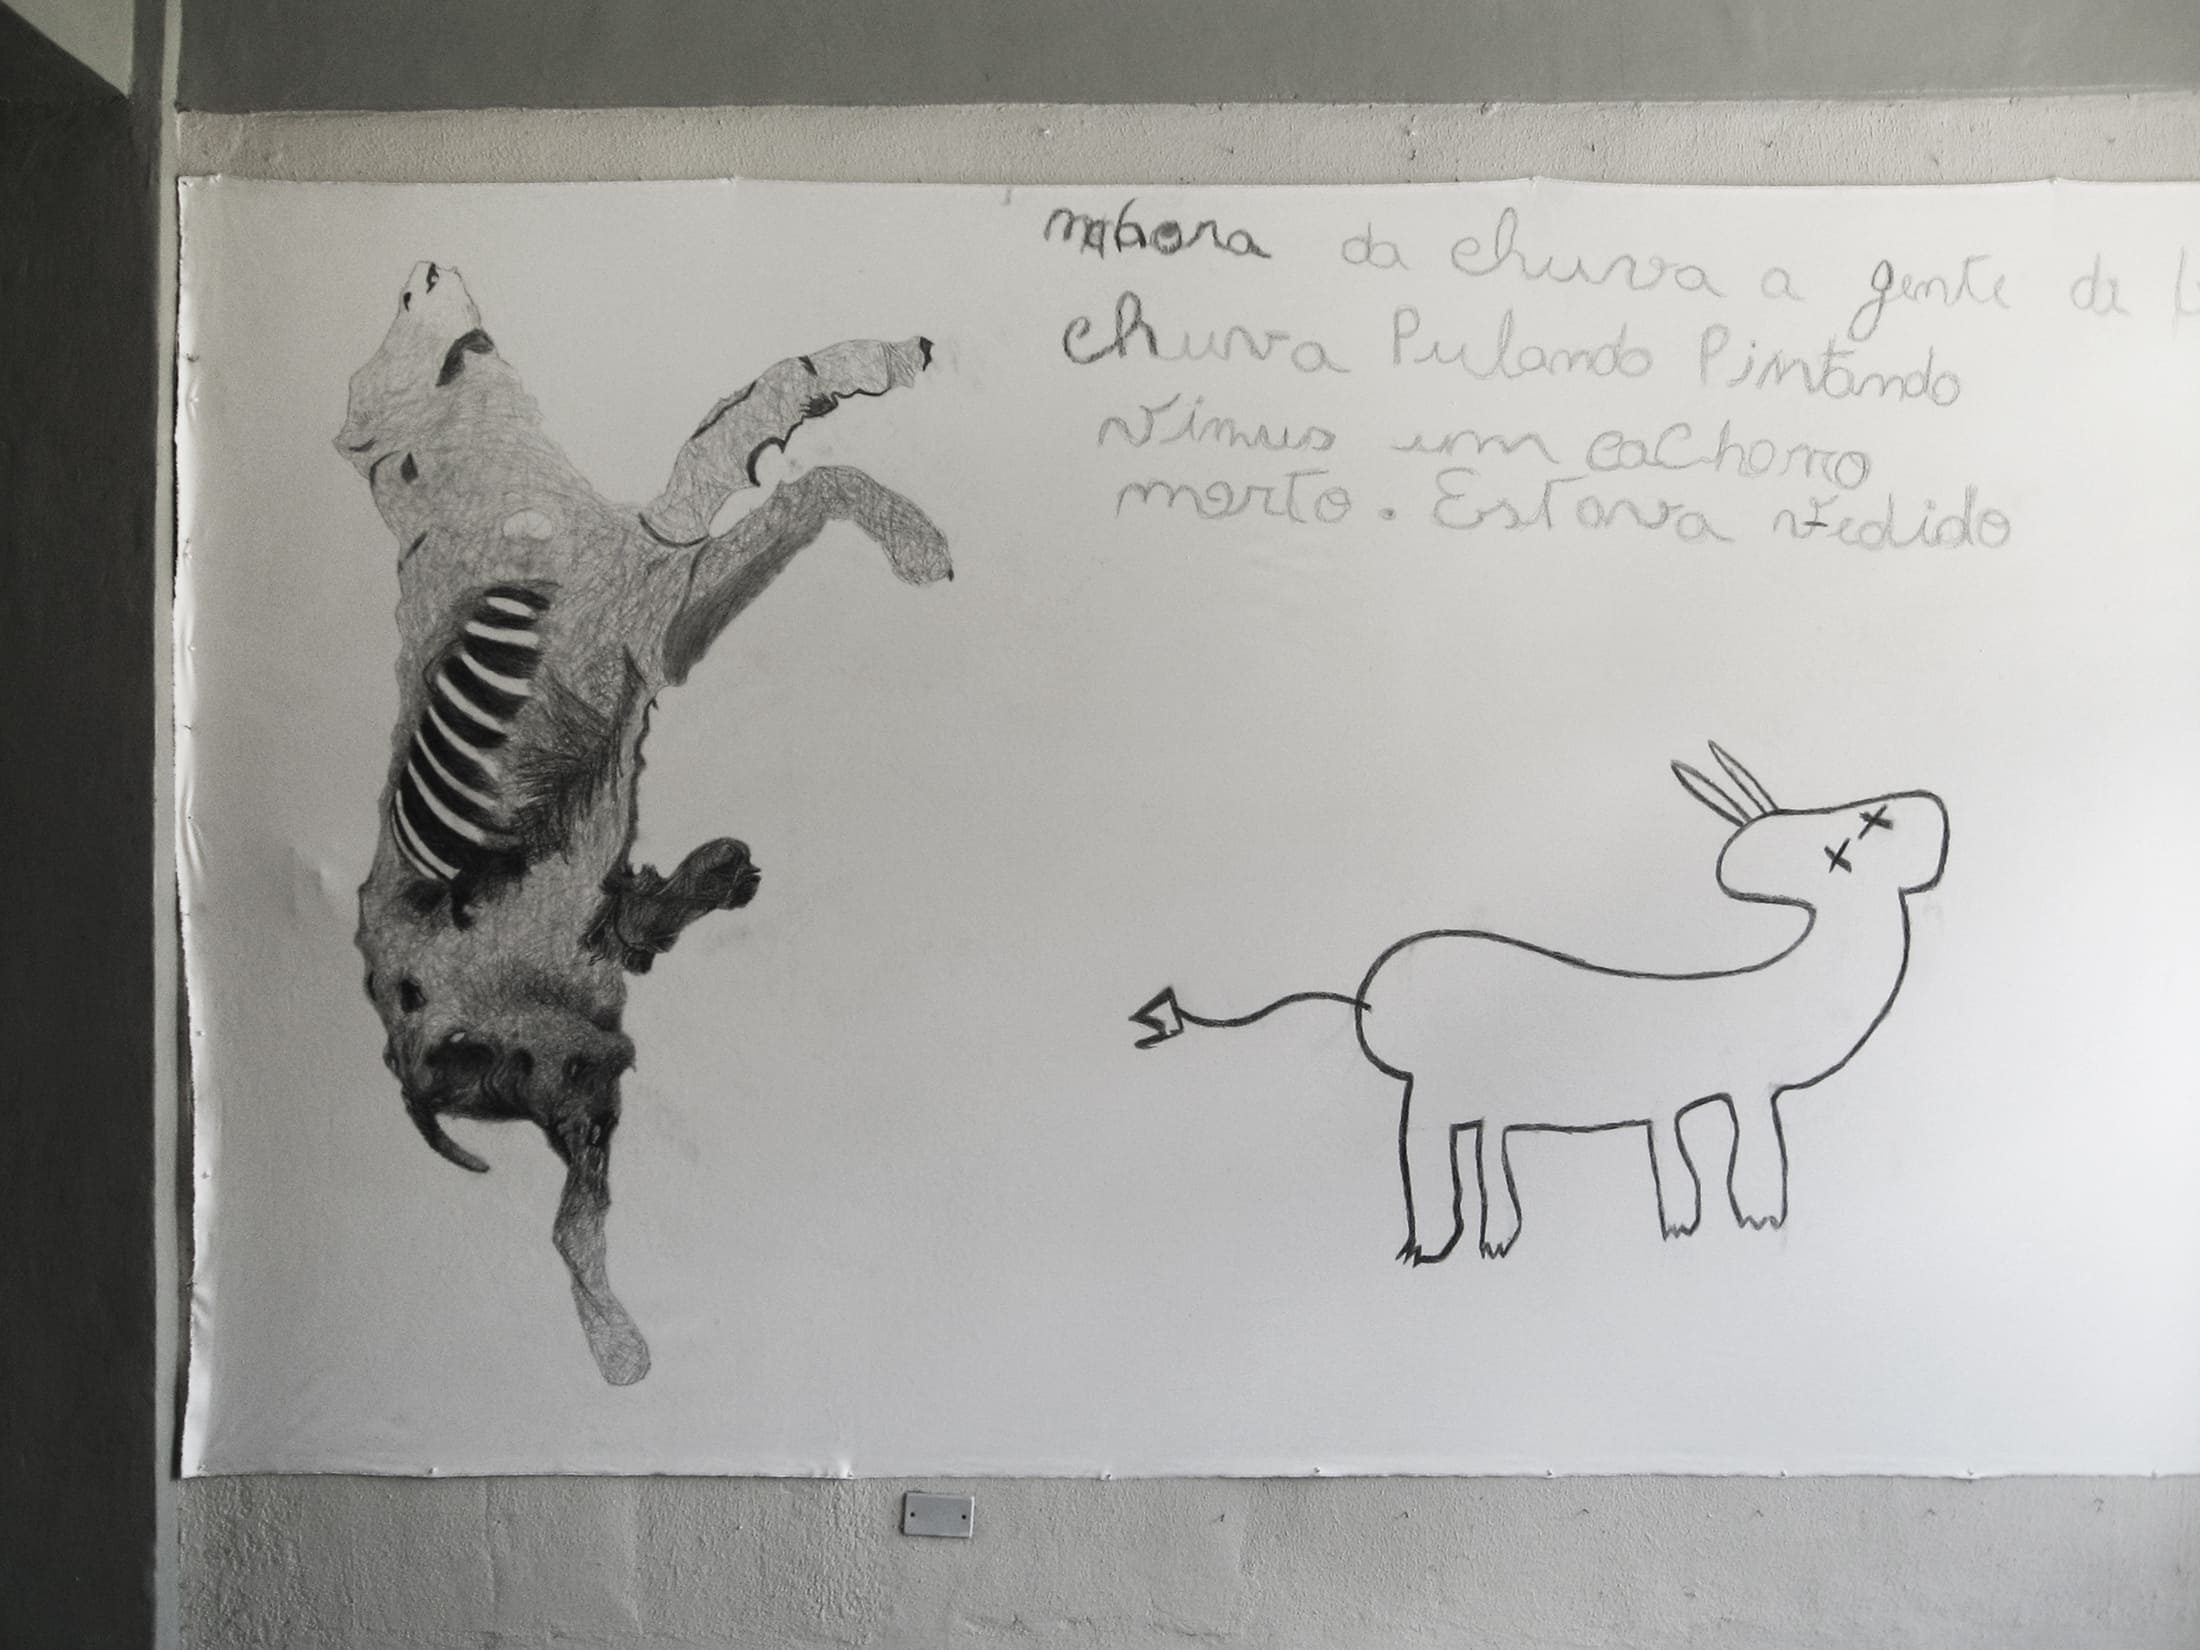 nahora da chuva a gente de
chuva Pulando Pintando
Vimus um cachorro
morto. Estava fedido